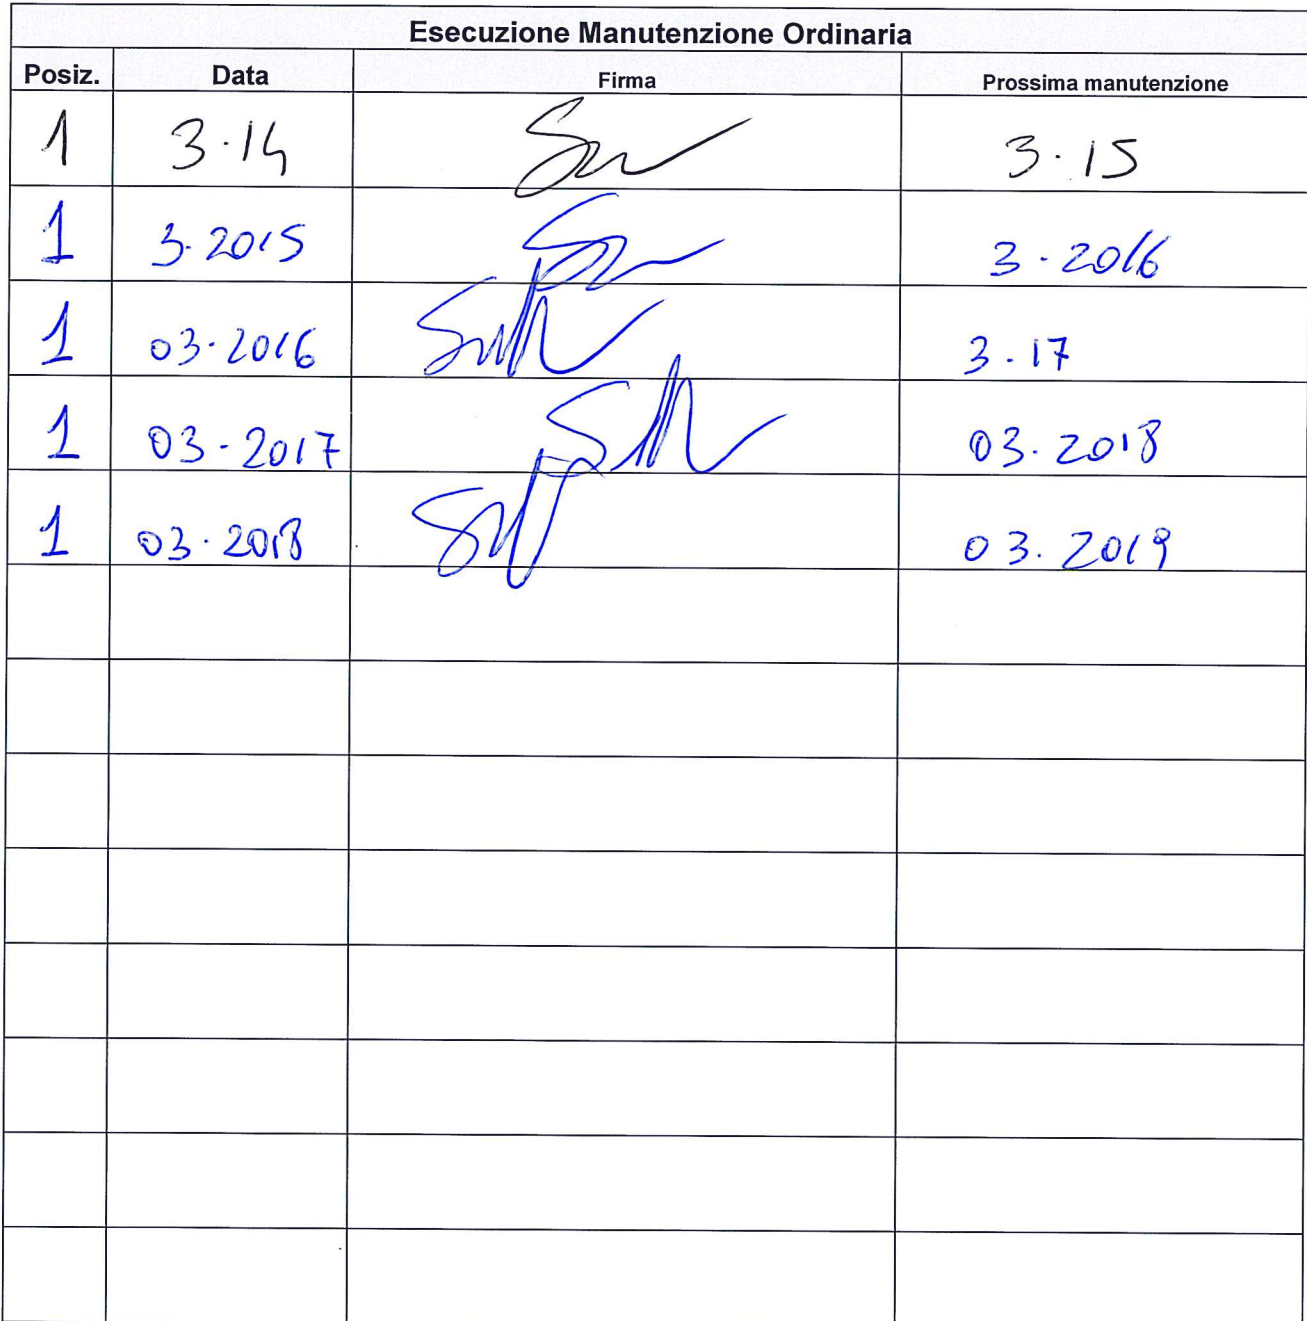 Esecuzione Manutenzione Ordinaria
Posiz. Data Firma Prossima manutenzione
1 3.14 3.15
1 3.2015 3.2016
1 03.2016 3.17
1 03-2017 03.2018
1 03.2018 03.2019